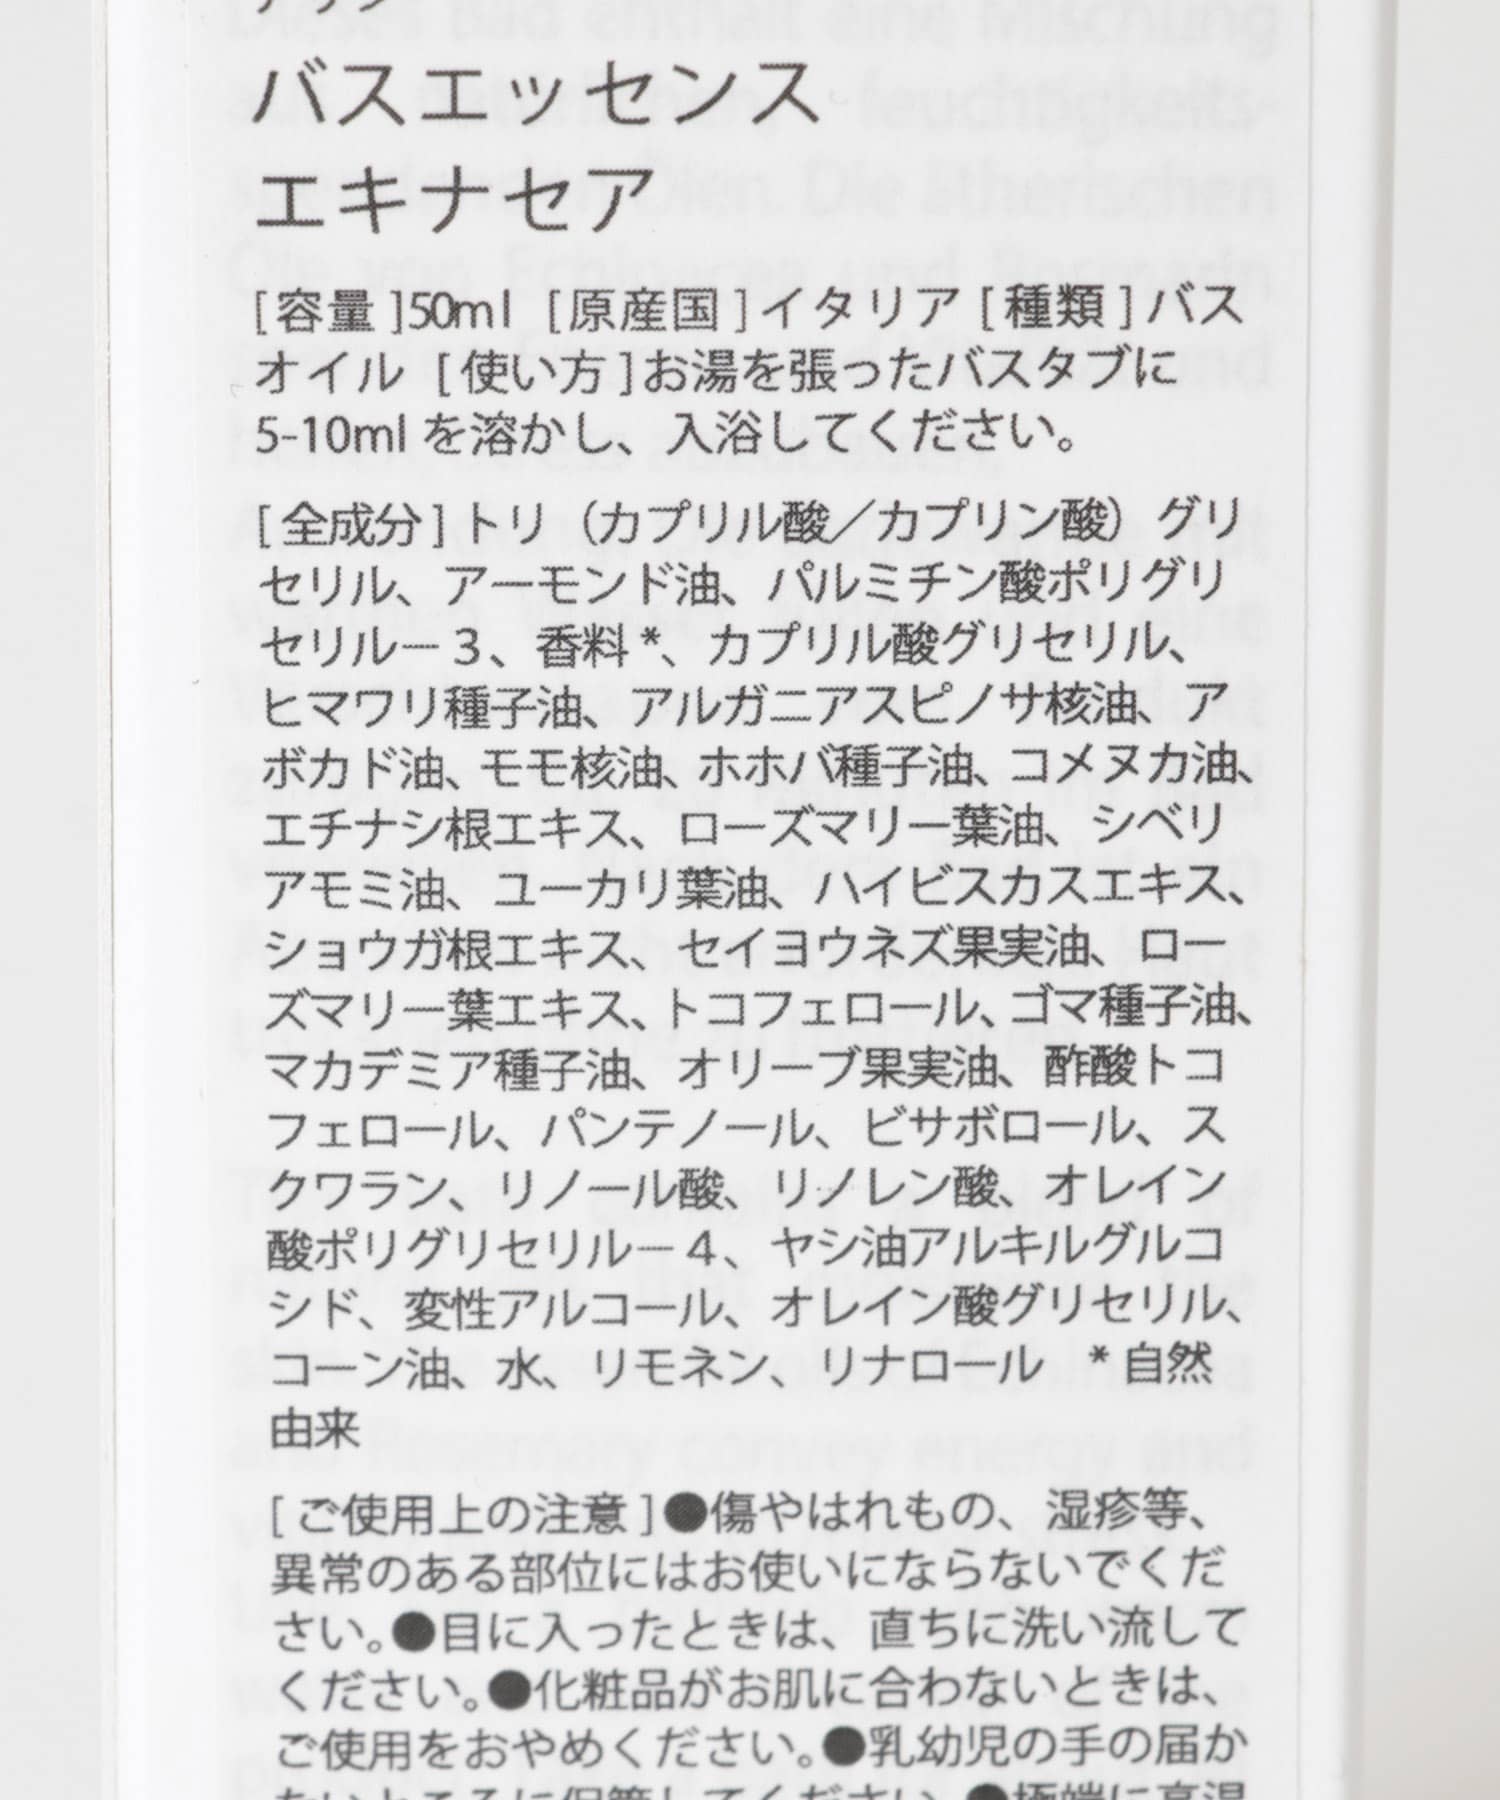 バスエッセンス
エキナセア
[ 容量 ]50ml [ 原産国 ] イタリア [ 種類 ] バス
オイル [ 使い方 ]お湯を張ったバスタブに
5-10ml を溶かし、入浴してください。
[ 全成分 ] トリ（カプリル酸／カプリン酸）グリ
セリル、アーモンド油、パルミチン酸ポリグリ
セリル－３、香料 *、カプリル酸グリセリル、
ヒマワリ種子油、アルガニアスピノサ核油、ア
ボカド油、モモ核油、ホホバ種子油、コメヌカ油、
エチナシ根エキス、ローズマリー葉油、シベリ
アモミ油、ユーカリ葉油、ハイビスカスエキス、
ショウガ根エキス、セイヨウネズ果実油、ロー
ズマリー葉エキス、トコフェロール、ゴマ種子油、
マカデミア種子油、オリーブ果実油、酢酸トコ
フェロール、パンテノール、ビサボロール、ス
クワラン、リノール酸、リノレン酸、オレイン
酸ポリグリセリル－４、ヤシ油アルキルグルコ
シド、変性アルコール、オレイン酸グリセリル、
コーン油、水、リモネン、リナロール　* 自然
由来
[ ご使用上の注意 ] ●傷やはれもの、湿疹等、
異常のある部位にはお使いにならないでくだ
さい。●目に入ったときは、直ちに洗い流して
ください。●化粧品がお肌に合わないときは、
ご使用をおやめください。●乳幼児の手の届か
ないところに保管してください。●極端に高温